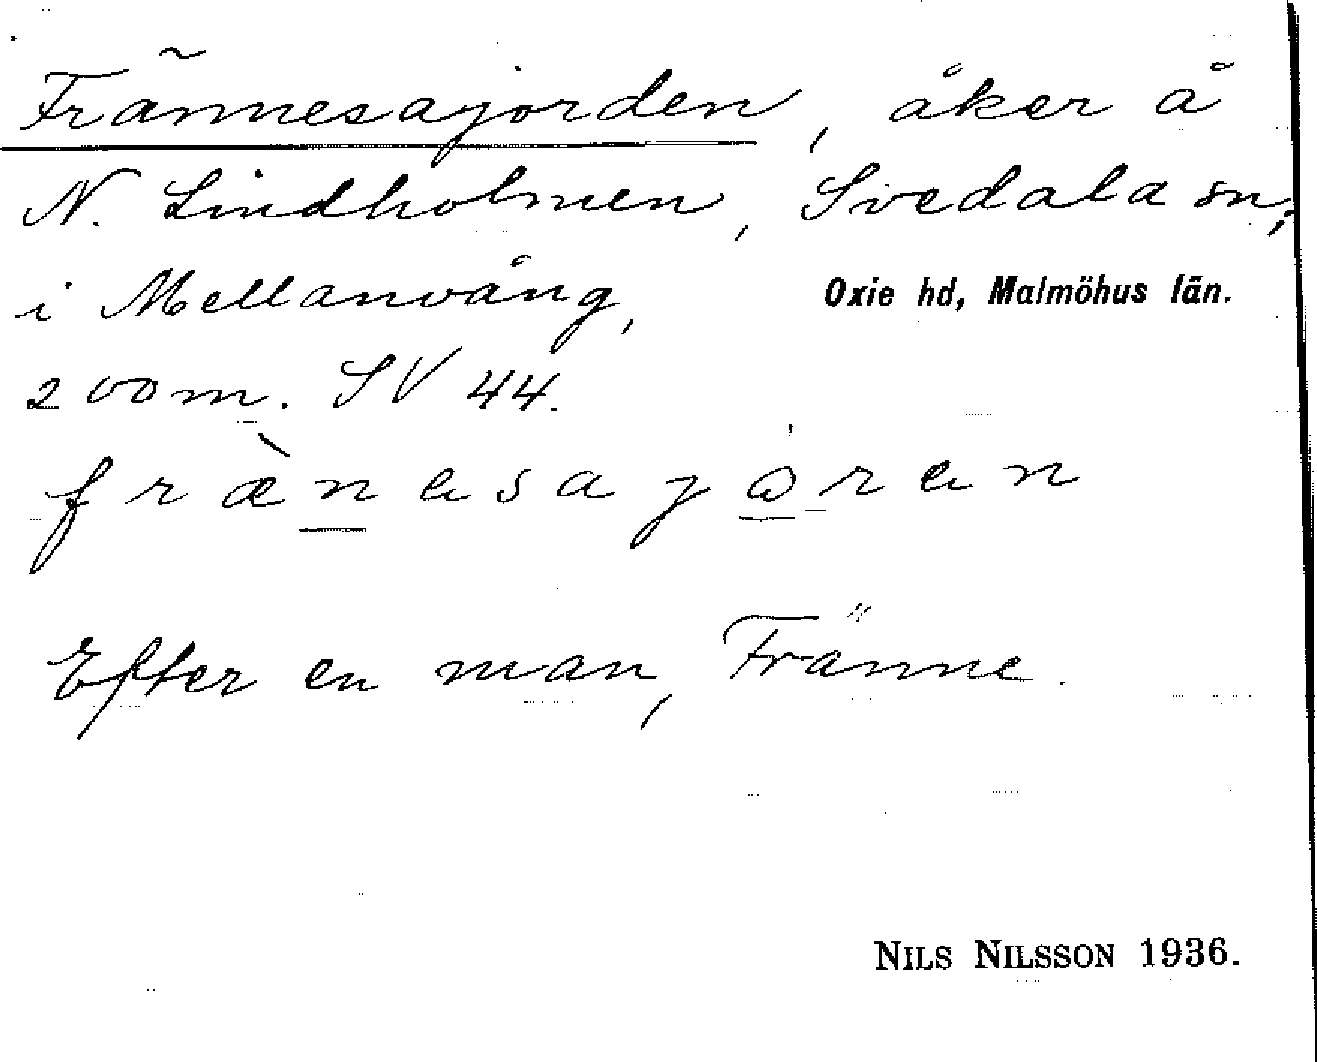 Frännesajorden, åker å
N. Lindholmen, Svedala sn,
i Mellanvång, Oxie hd, Malmöhus län.
200 m. SV 44.
frænesajɷren
Efter en man, Fränne.
NILS NILSSON 1936.